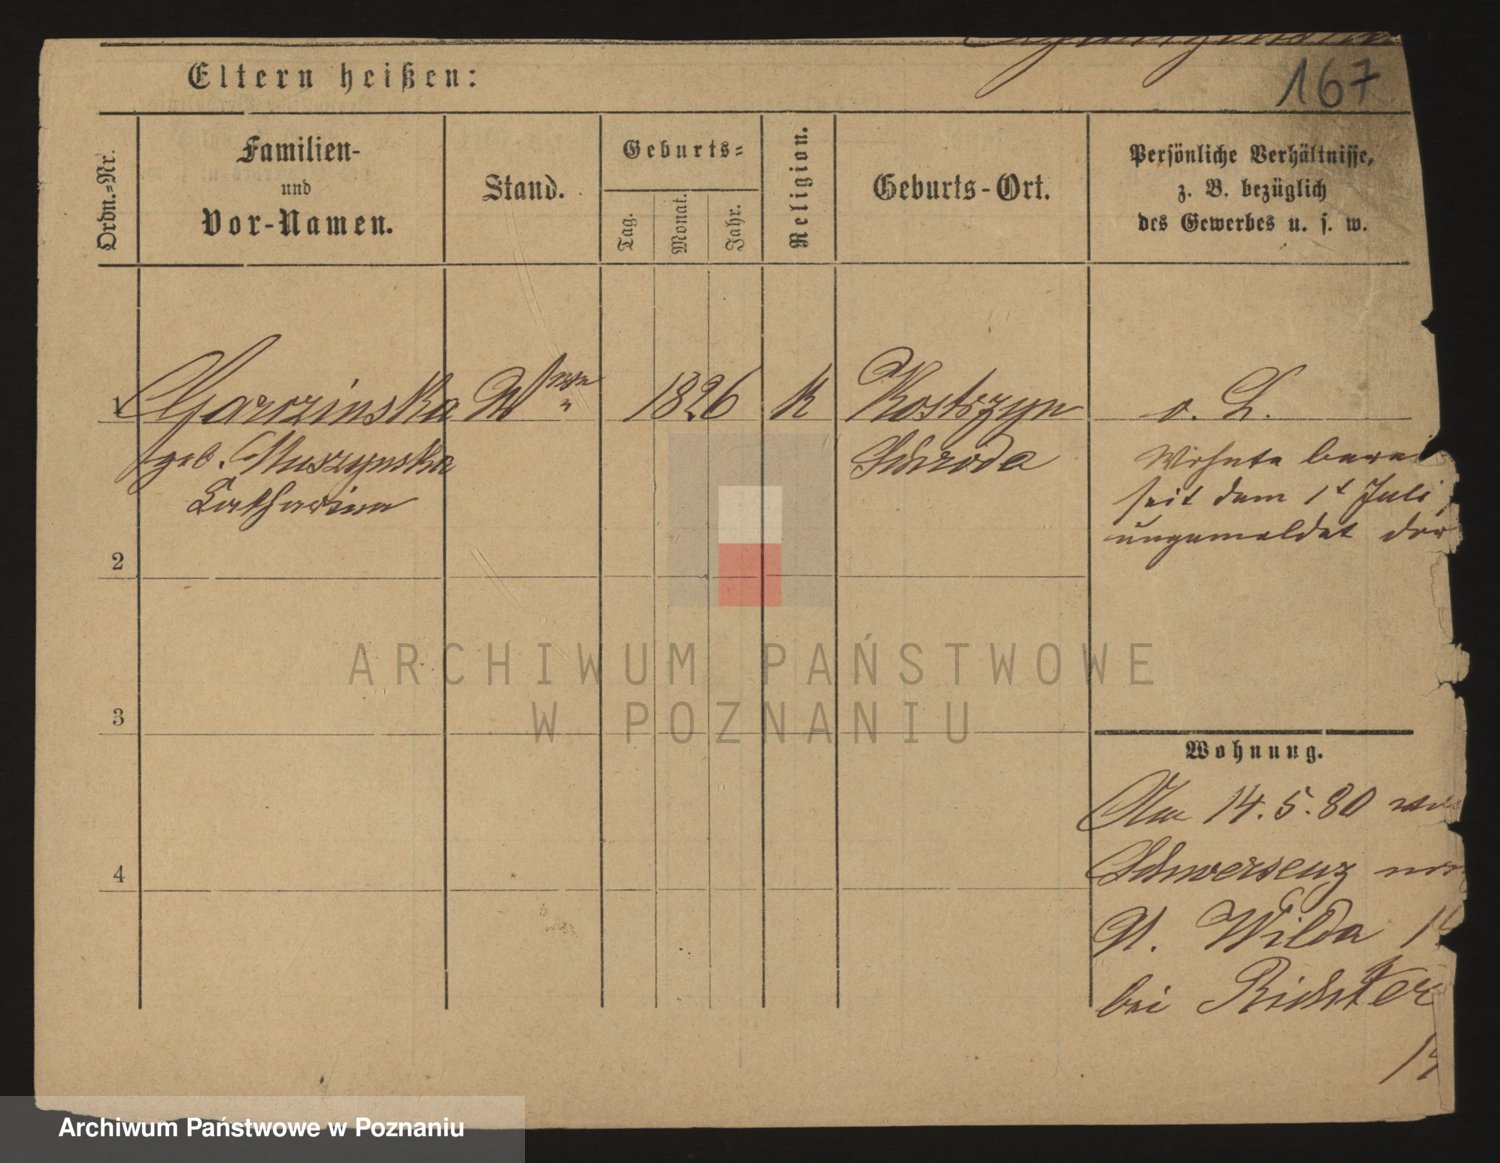 167
Eltern heißen:
Ordn.-Nr.
Familien-
und
Vor-Namen.
Stand.
Geburts-
Tag.
Monat.
Jahr.
Religion.
Geburts-Ort.
Persönliche Verhältnisse,
z. B. bezüglich
des Gewerbes u. s. w.
Garczinska Wwe 1826 k Kostrzyn o. L.
geb. Muszynska Schroda Wohnte berei
Catharina seit dem 1t Juli
ungemeldet
2
3
4
Wohnung.
Am 14.5.80
Schwersenz
St. Wilda
bei Richter
ARCHIWUM PAŃSTWOWE
W POZNANIU
Archiwum Państwowe w Poznaniu